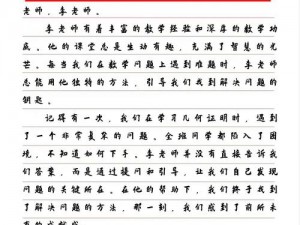 老师，李老师。
李老师有着丰富的数学经验和深厚的数学功
底。他的课堂总是生动有趣，充满了智慧的光
芒。每当我们在数学问题上遇到难题时，李老师
总能用他独特的方法，引导我们找到解决问题的
钥匙。
记得有一次，我们在学习几何证明时，遇到
了一个非常复杂的问题。全班同学都陷入了困
境，不知道如何下手。李老师并没有直接告诉我
们答案，而是通过提问和引导，让我们自己发现
问题的关键所在。在他的帮助下，我们终于找到
了解决问题的方法，那一刻，我们感到了前所未